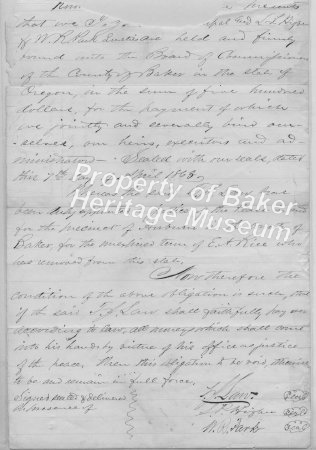 Know
that we
of W. R. Park are held and firmly
bound unto the Board of Commissioners
of the County of Baker in the state of
Oregon, in the sum of five hundred
dollars, for the payment of which
we jointly and severally bind our-
selves, our heirs, executors and ad-
ministrators. Sealed with our seals, dated
this 7th day of April 1868,
been duly
for the precinct of Auburn
Baker, for the unexpired term of E. A. Rice who
was removed from this state.
Now therefore the
condition of the above obligation is such, that
if the said Law shall faithfully pay over
according to law, all moneys which shall come
into his hands by virtue of his office as justice
of the peace, then this obligation to be void, otherwise
to be and remain in full force.
Signed sealed & delivered
in presence of
Law
W. R. Park
Property of Baker
Heritage Museum